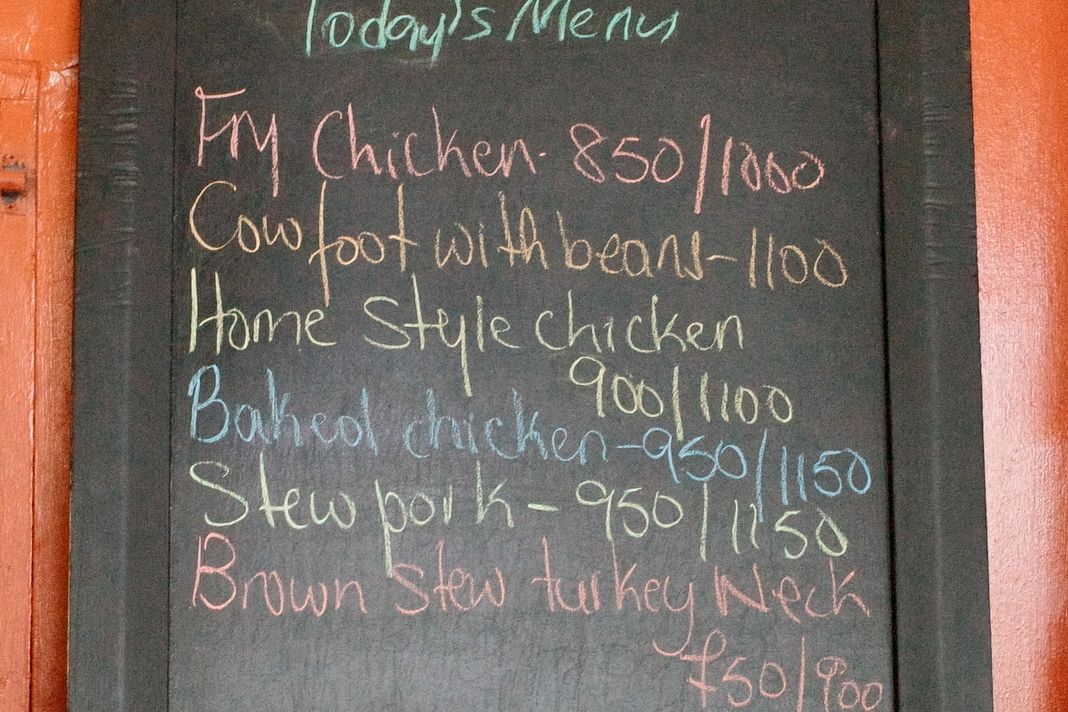 Today's Menu
Fry Chicken - 850/1000
Cow foot with beans - 1100
Home Style chicken
900/1100
Baked chicken - 950/1150
Stew pork - 950/1150
Brown Stew turkey Neck
750/900